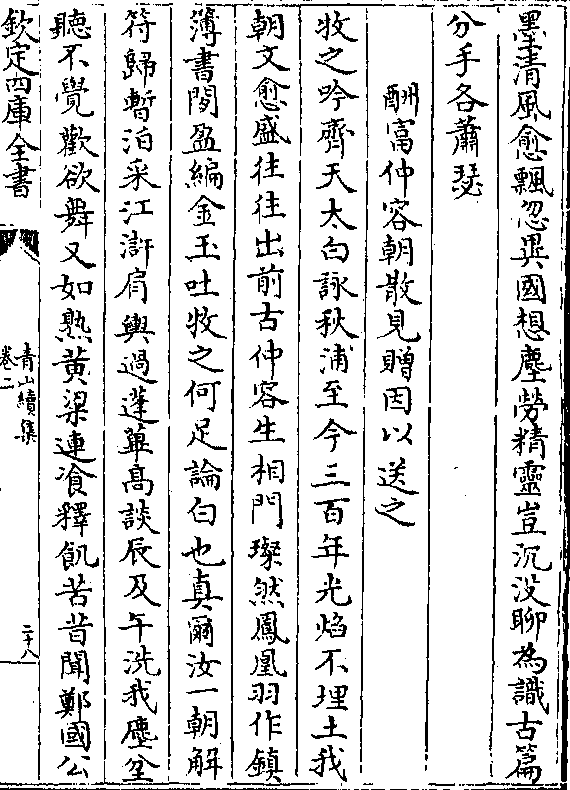 墨清風愈飄忽異國想塵勞精靈豈沉没聊為識古篇
分手各蕭瑟
酬富仲容朝散見贈因以送之
牧之吟齊天太白詠秋浦至今三百年光焰不埋土我
朝文愈盛往往出前古仲容生相門璨然鳳凰羽作鎮
薄書間盈編金玉吐牧之何足論白也真爾汝一朝解
符歸暫泊采江滸肩輿過蓬蓽高談辰及午洗我塵坌
聽不覺歡欲舞又如熟黄梁連飡釋飢苦昔聞鄭國公
欽定四庫全書
青山續集
卷二
二十八